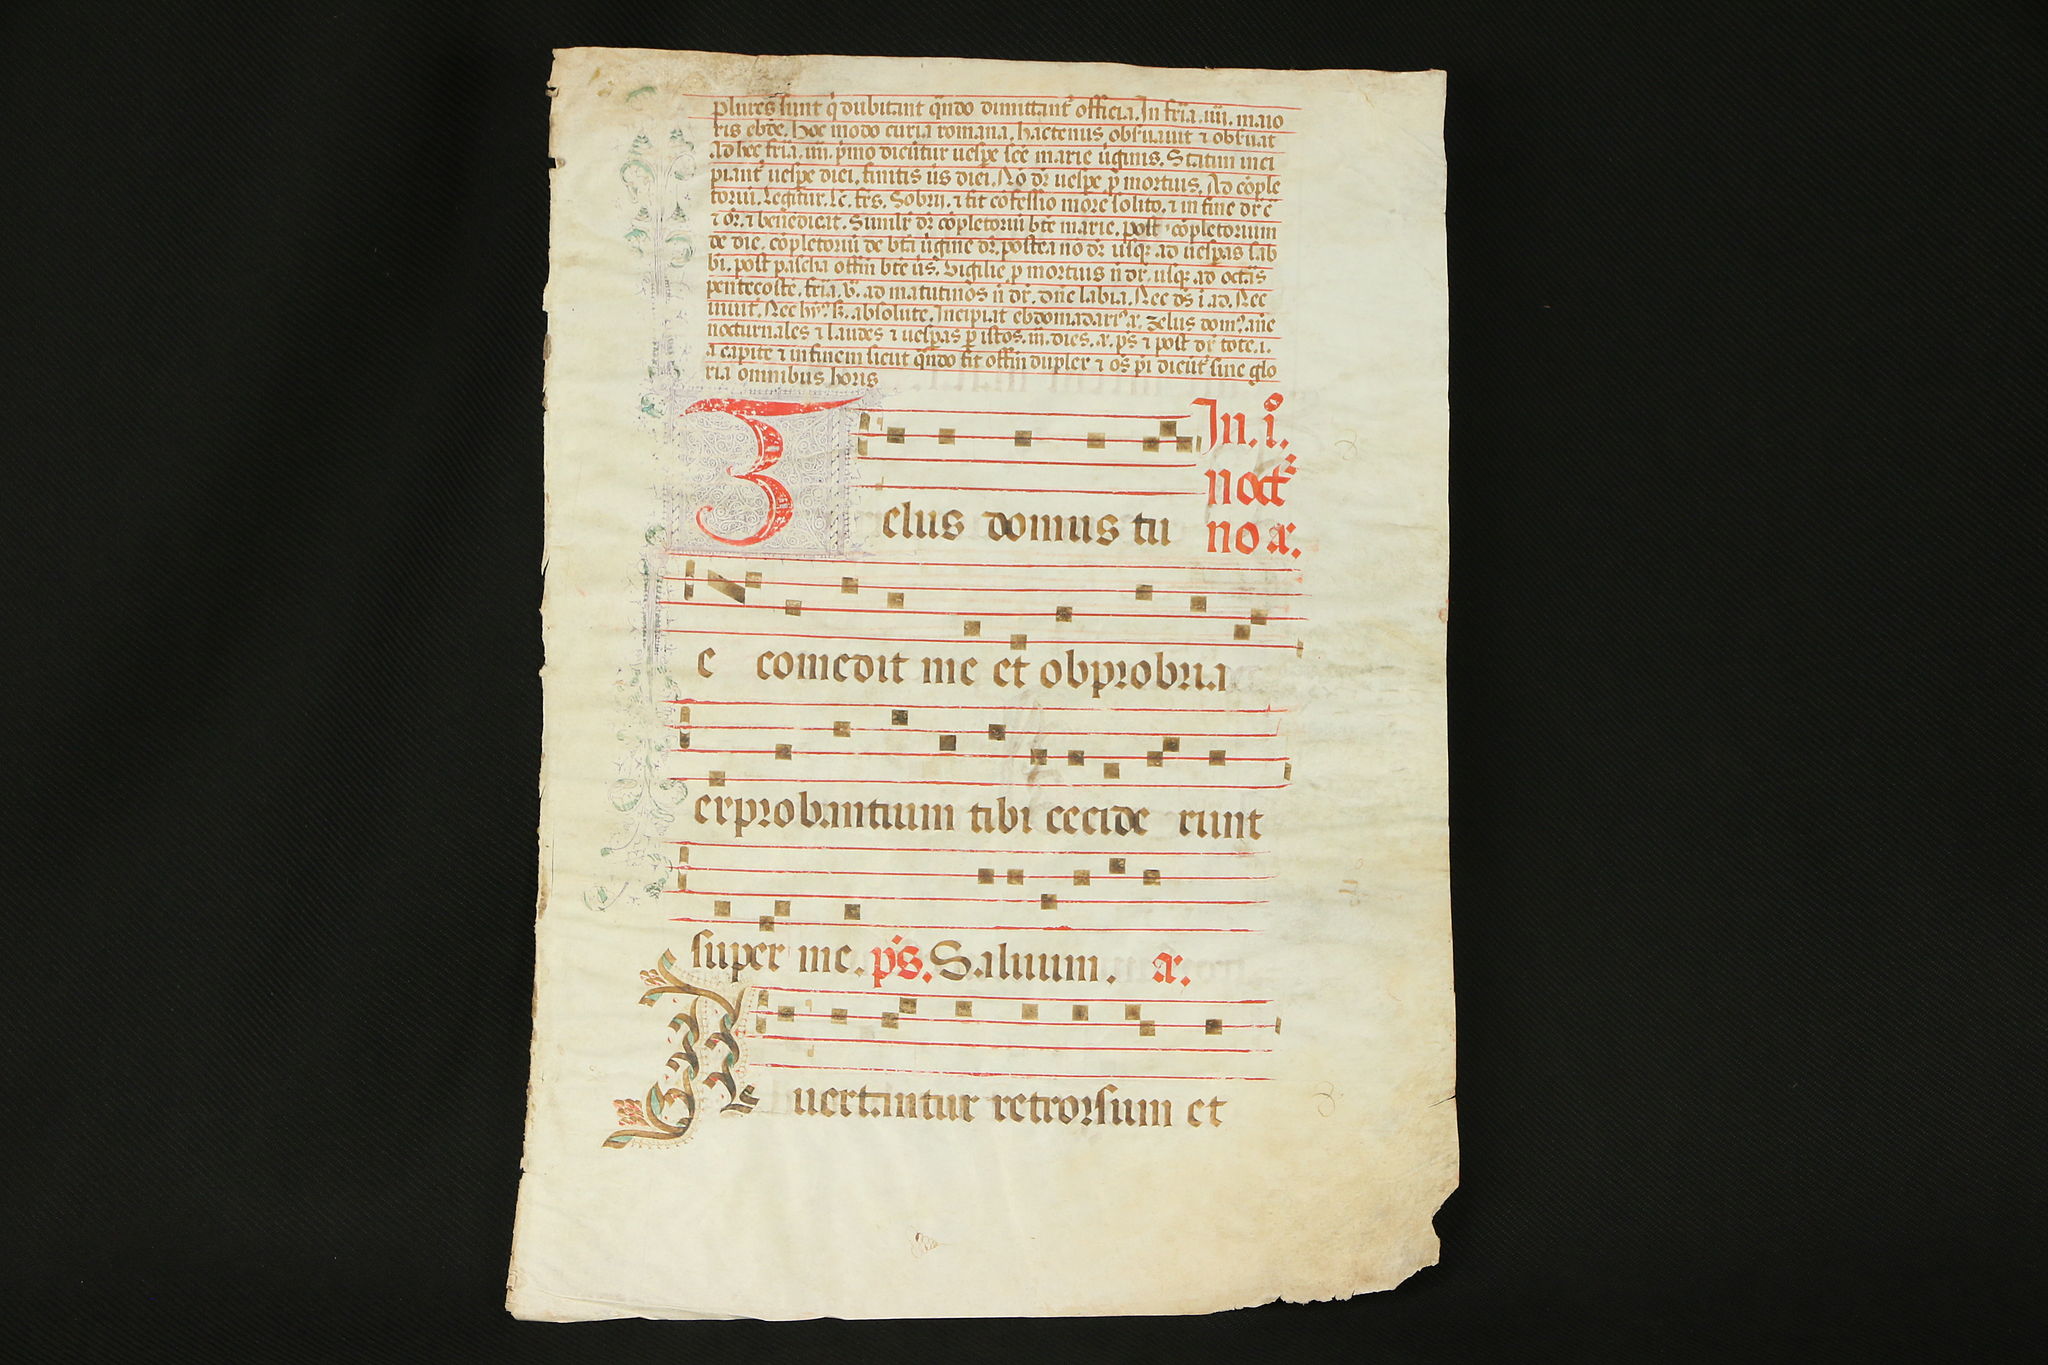 plures sunt q̇ dubitant qn̄do dimittant᷑ officia. In fr̄ia .iiii. maio
ris ebdē. hoc modo curia romana. hactenus obsruauit ⁊ obsruat
Ad hec fr̄ia .iiii. p̄mo dicūtur uesp̄e scē marie ūginis. Statim inci
piant᷑ uesp̄e diei. finitis ūs diei. Nō dr̄ uesp̄e p̱ mortuis. Ad cōple
toriū. Legitur. lc̄. fr̄s. Sobrij. ⁊ fit cōfessio more solito. ⁊ in fine dr̄
⁊ or̄. ⁊ benedicit. Simil᷑r dr̄ cōpletoriū btē marie. post cōpletorium
de die. cōpletoriū de btā ūgine dr̄. postea nō dr̄ usq̄ ad uesp̄as sab
bi. post pascha offīm btē ūs. Vigilie p̱ mortuis n̄ dr̄. usq̄ ad octās
pentecoste. fr̄ia .v. ad matutinos n̄ dr̄. dn̄e labia. Nec ds̄ ī ad. Nec
inuit̄. Nec hy᷒. absolute. Incipiat ebdomadari᷒ a᷑. zelus dom᷒. añe
nocturnales ⁊ laudes ⁊ uesp̄as p̱ istos .iii. dies. a᷑. ps̄ ⁊ post dr̄ tote. i.
a capite ⁊ in finem sicut qn̄do fit offīm dupler ⁊ os̄ pi dicūt᷑ sine glo
ria omnibus horis
In. i°.
noct᷑
no a᷑.
Zelus domus tu
e comedit me et obprobria
exprobantium tibi cecide runt
super me. ps̄. Saluum. a᷑.
Auertantur retrorsum et